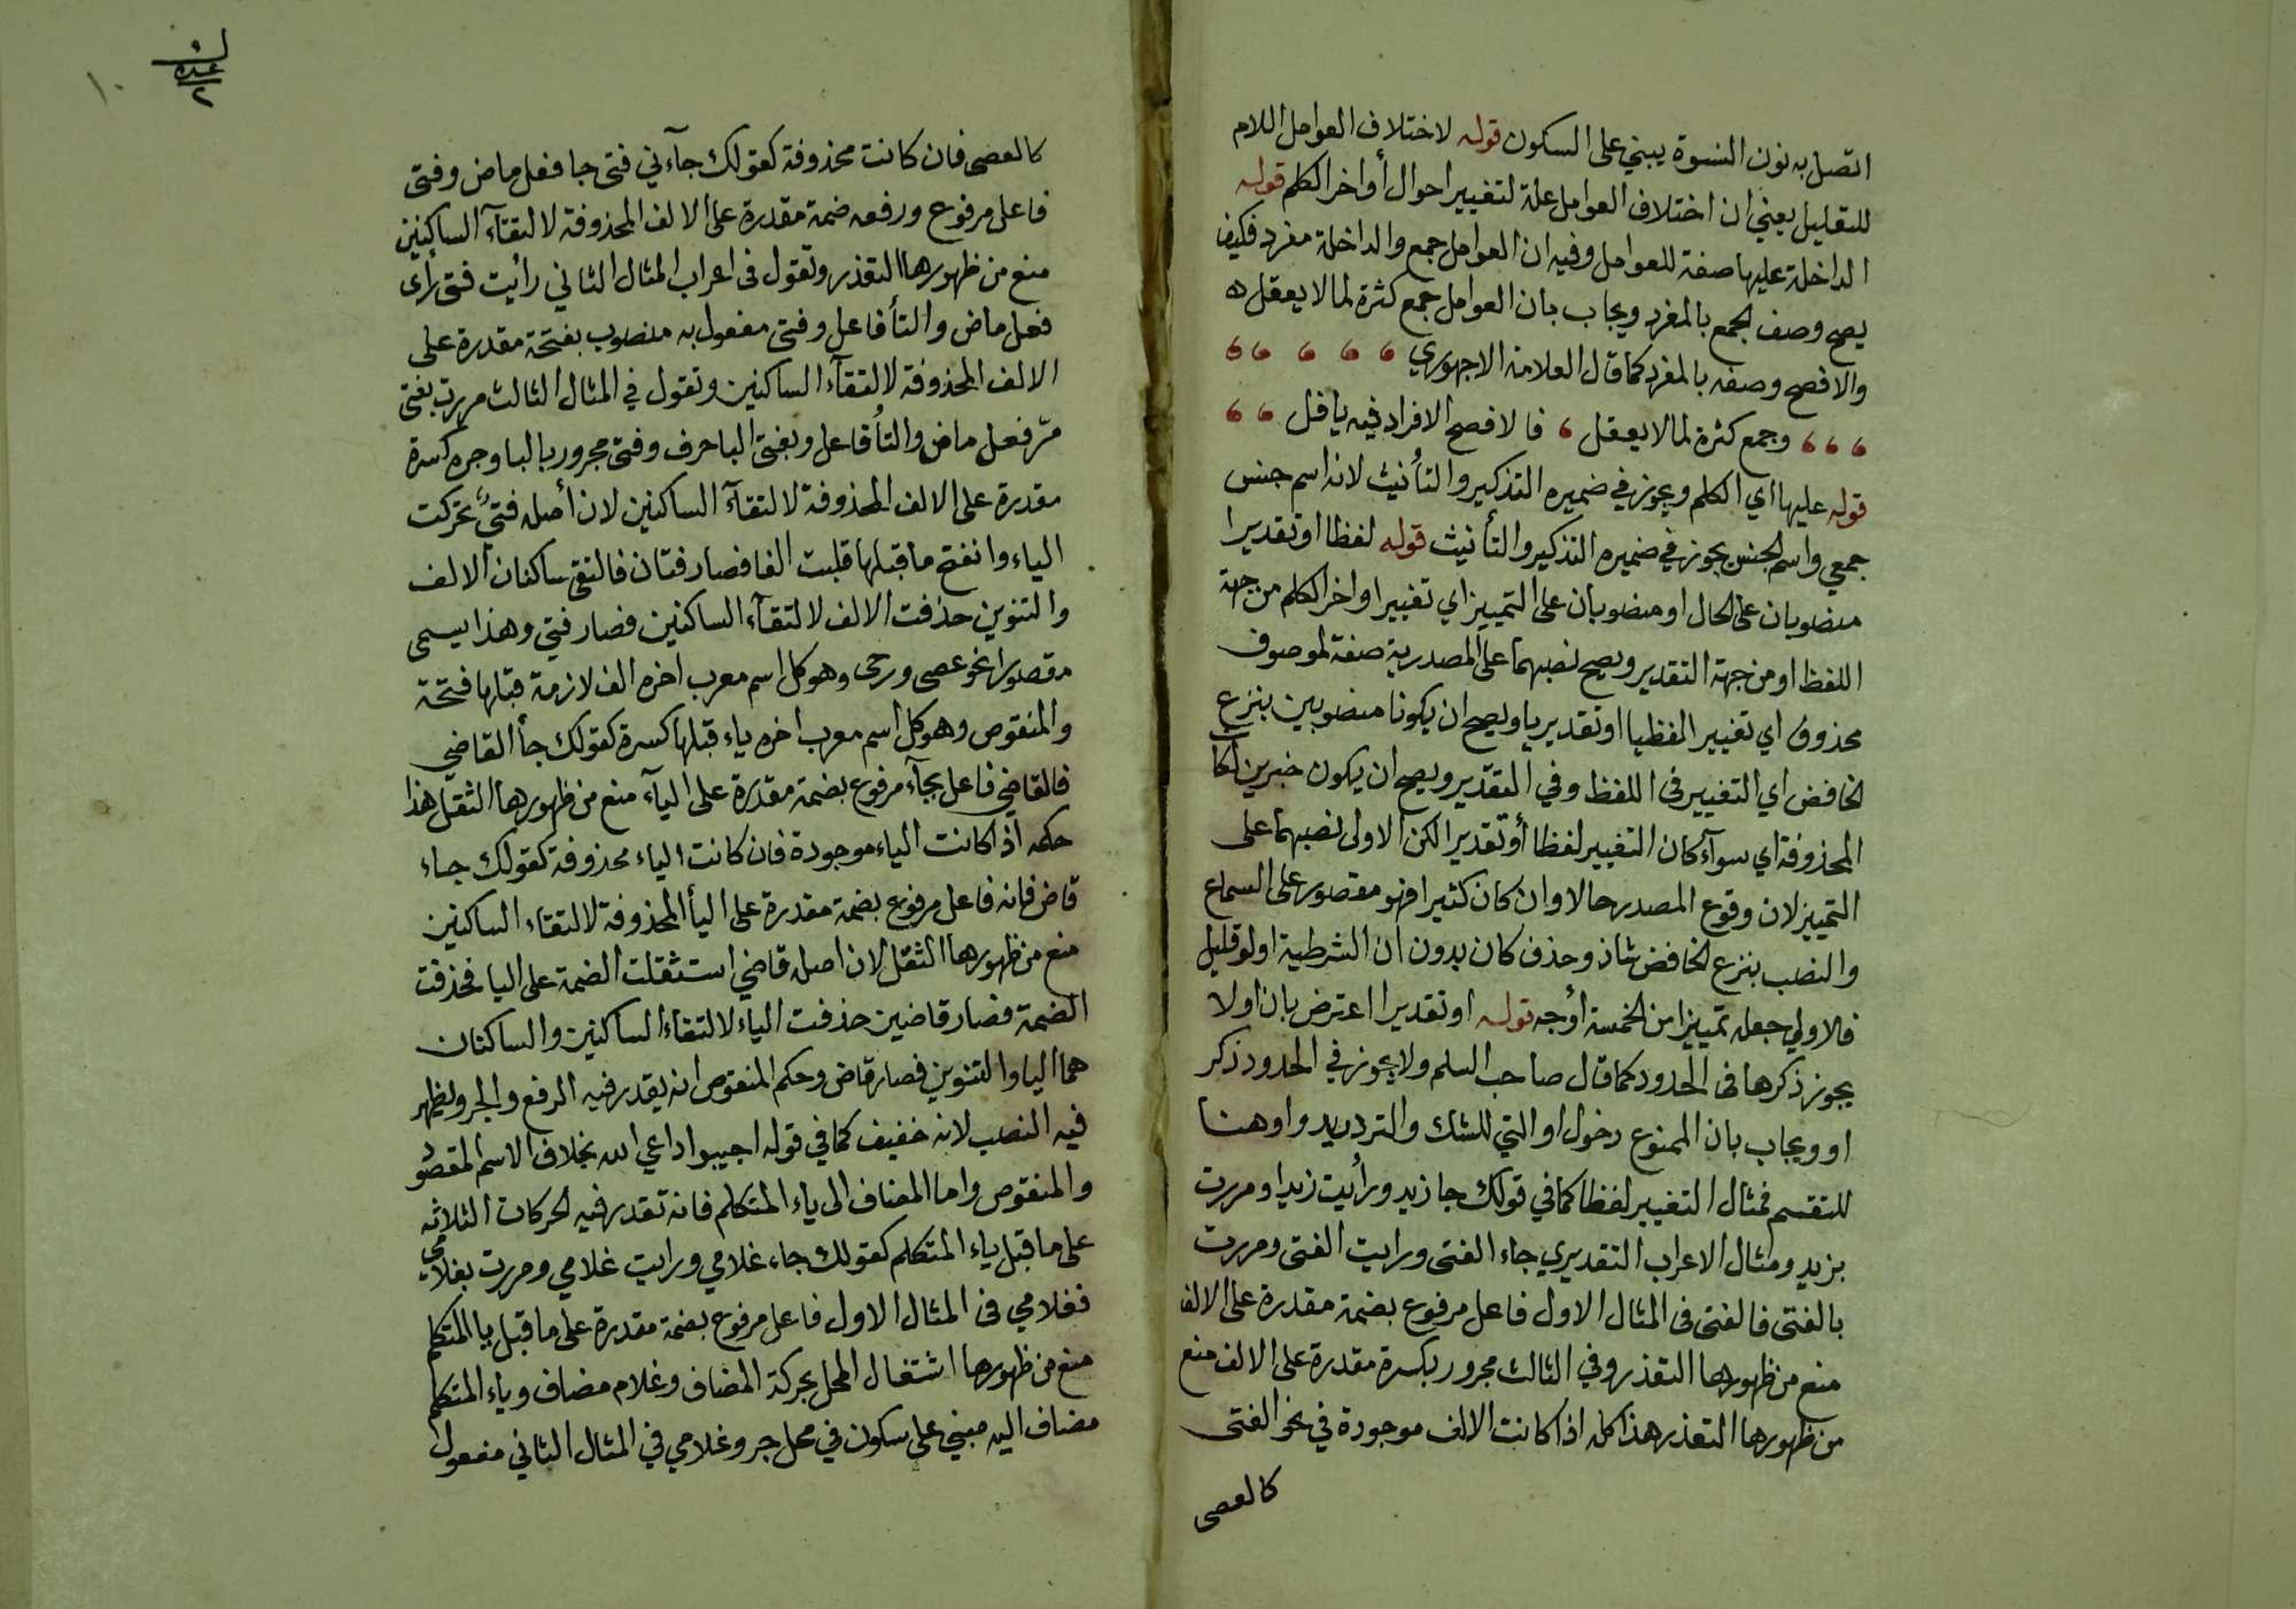 اتصل به نون النسوة يبني على السكون قوله لاختلاف العوامل اللام
للتعليل يعني ان اختلاف العوامل علة لتغيير احوال أواخر الكلم قوله
الداخلة عليها صفة للعوامل وفيه ان العوامل جمع والداخلة مفرد فكيف
يصح وصف الجمع بالمفرد ويجاب بان العوامل جمع كثرة لما لا يعقل
والافصح وصفه بالمفرد كما قال العلامة الاجهوري
وجمع كثرة لما لا يعقل ، فالافصح الافراد فيه يا فل
قوله عليها اي الكلم ويجوز في ضميره التذكير والتأنيث لانه اسم جنس
جمعي واسم الجنس يجوز في ضميره التذكير والتأنيث قوله لفظا او تقديرا
منصوبان على الحال او منصوبان على التمييز اي تغيير اواخر الكلم من جهة
اللفظ او من جهة التقدير ويصح نصبهما على المصدرية صفة لموصوف
محذوف اي تغييرا لفظيا او تقديريا ويصح ان يكونا منصوبين بنزع
الخافض اي التغيير في اللفظ وفي التقدير ويصح ان يكون خبرين لكان
المحذوفة اي سوآء كان التغيير لفظا أو تقديرا لكن الاولى نصبهما على
التمييز لان وقوع المصدر حالا وان كان كثيرا فهو مقصور على السماع
والنصب بنزع الخافض شاذ وحذف كان بدون ان الشرطية او لو قليل
فالاولي جعله تمييزا من الخمسة أوجه قوله او تقديرا اعترض بان او لا
يجوز ذكرها في الحدود كما قال صاحب السلم ولا يجوز في الحدود ذكر
او ويجاب بان الممنوع دخول او التي للشك والترديد واو هنا
للتقسم فمثال التغيير لفظا كما في قولك جا زيد ورأيت زيدا ومررت
بزيد ومثال الاعراب التقديري جاء الفتى ورايت الفتى ومررت
بالفتى فالفتى في المثال الاول فاعل مرفوع بضمة مقدرة على الالف
منع من ظهورها التعذر وفي الثالث مجرور بكسرة مقدرة على الالف منع
من ظهورها التعذر هذا كله اذا كانت الالف موجودة في نحو الفتى
كالعصى
١٠
عده
٢
كالعصى فان كانت محذوفة كقولك جآءني فتى جا فعل ماض وفتى
فاعل مرفوع ورفعه ضمة مقدرة على الالف المحذوفة لالتقآء الساكنين
منع من ظهورها التعذر وتقول في اعراب المثال الثاني رأيت فتى رأى
فعل ماض والتأ فاعل وفتى مفعول به منصوب بفتحة مقدرة على
الالف المحذوفة لالتقآء الساكنين وتقول في المثال الثالث مررت بفتى
مرّ فعل ماض والتأ فاعل وبفتى البا حرف وفتى مجرور بالبا وجره كسرة
مقدرة على الالف المحذوفة لالتقآء الساكنين لان أصله فتيٌ تحركت
الياء وانفتح ما قبلها قلبت الفا فصار فتان فالتقى ساكنان الالف
والتنوين حذفت الالف لالتقآء الساكنين فصار فتي وهذا يسمى
مقصورا نحو عصى ورحى وهو كل اسم معرب اخره الف لازمة قبلها فتحة
والمنقوص وهو كل اسم معرب اخره ياء قبلها كسرة كقولك جأ القاضي
فالقاضي فاعل بجآء مرفوع بضمة مقدرة على اليآء منع من ظهورها الثقل هذا
حكمه اذا كانت الياء موجودة فان كانت الياء محذوفة كقولك جاء
قاض فانه فاعل مرفوع بضمة مقدرة على اليأ المحذوفة لالتقاء الساكنين
منع من ظهورها الثقل لان اصله قاضي استثقلت الضمة على اليا فحذفت
الضمة فصار قاضين حذفت الياء لالتقاء الساكنين والساكنان
هما اليا والتنوين فصار قاض وحكم المنقوص انه يقدر فيه الرفع والجر ويظهر
فيه النصب لانه خفيف كما في قوله اجيبوا داعي الله بخلاف الاسم المقصور
والمنقوص واما المضاف الى ياء المتكلم فانه تقدر فيه الحركات الثلاثه
على ما قبل ياء المتكلم كقولك جاء غلامي ورايت غلامي ومررت بغلامي
فغلامي في المثال الاول فاعل مرفوع بضمة مقدرة على ما قبل يا المتكلم
منع من ظهورها اشتغال المحل بحركة المضاف وغلام مضاف وياء المتكلم
مضاف اليه مبني على سكون في محل جر وغلامي في المثال الثاني مفعول